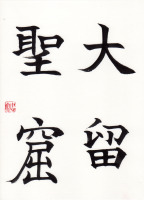 大留
聖窟